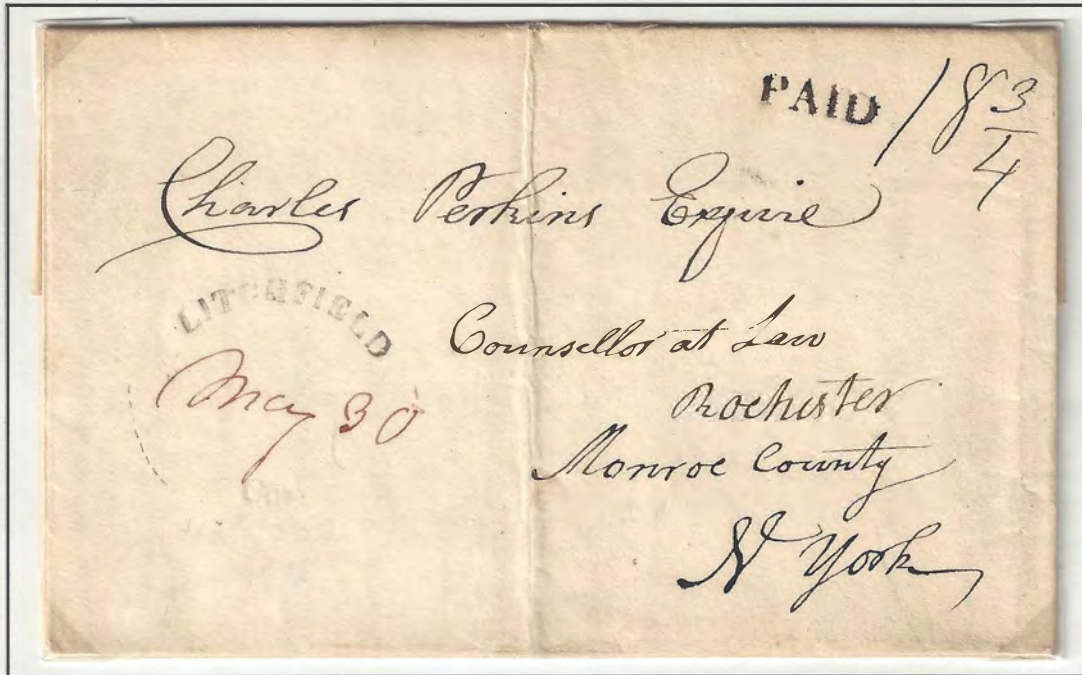 PAID 18 3/4
Charles Perkins Esquire
LITCHFIELD
May 30
Counsellor at Law
Rochester
Monroe County
N York